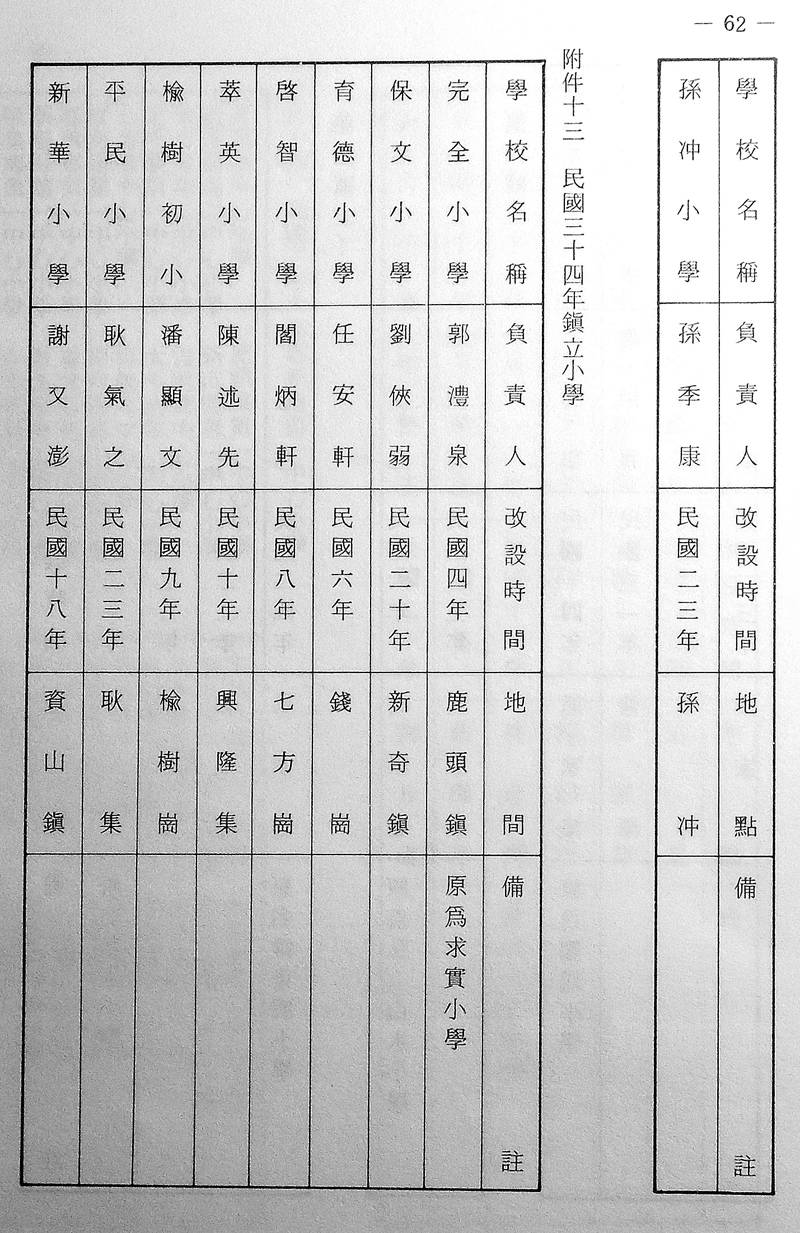 — 62 —
學校名稱 負責人 改設時間 地點 備註
孫冲小學 孫季康 民國二三年 孫冲
附件十三 民國三十四年鎭立小學
學校名稱 負責人 改設時間 地間 備註
完全小學 郭澧泉 民國四年 鹿頭鎭 原爲求實小學
保文小學 劉俠弱 民國二十年 新奇鎭
育德小學 任安軒 民國六年 錢崗
啓智小學 閻炳軒 民國八年 七方崗
萃英小學 陳述先 民國十年 興隆集
楡樹初小 潘顯文 民國九年 楡樹崗
平民小學 耿氣之 民國二三年 耿集
新華小學 謝又澎 民國十八年 資山鎭